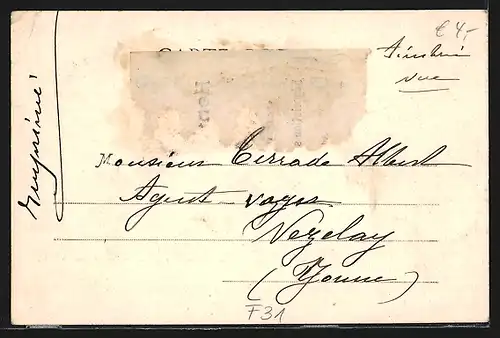 € 4,-
CARTE
timbré
vue
Imprimé
Monsieur Terrade Albert
Agent-voyer
Vezelay
(Yonne)
F31